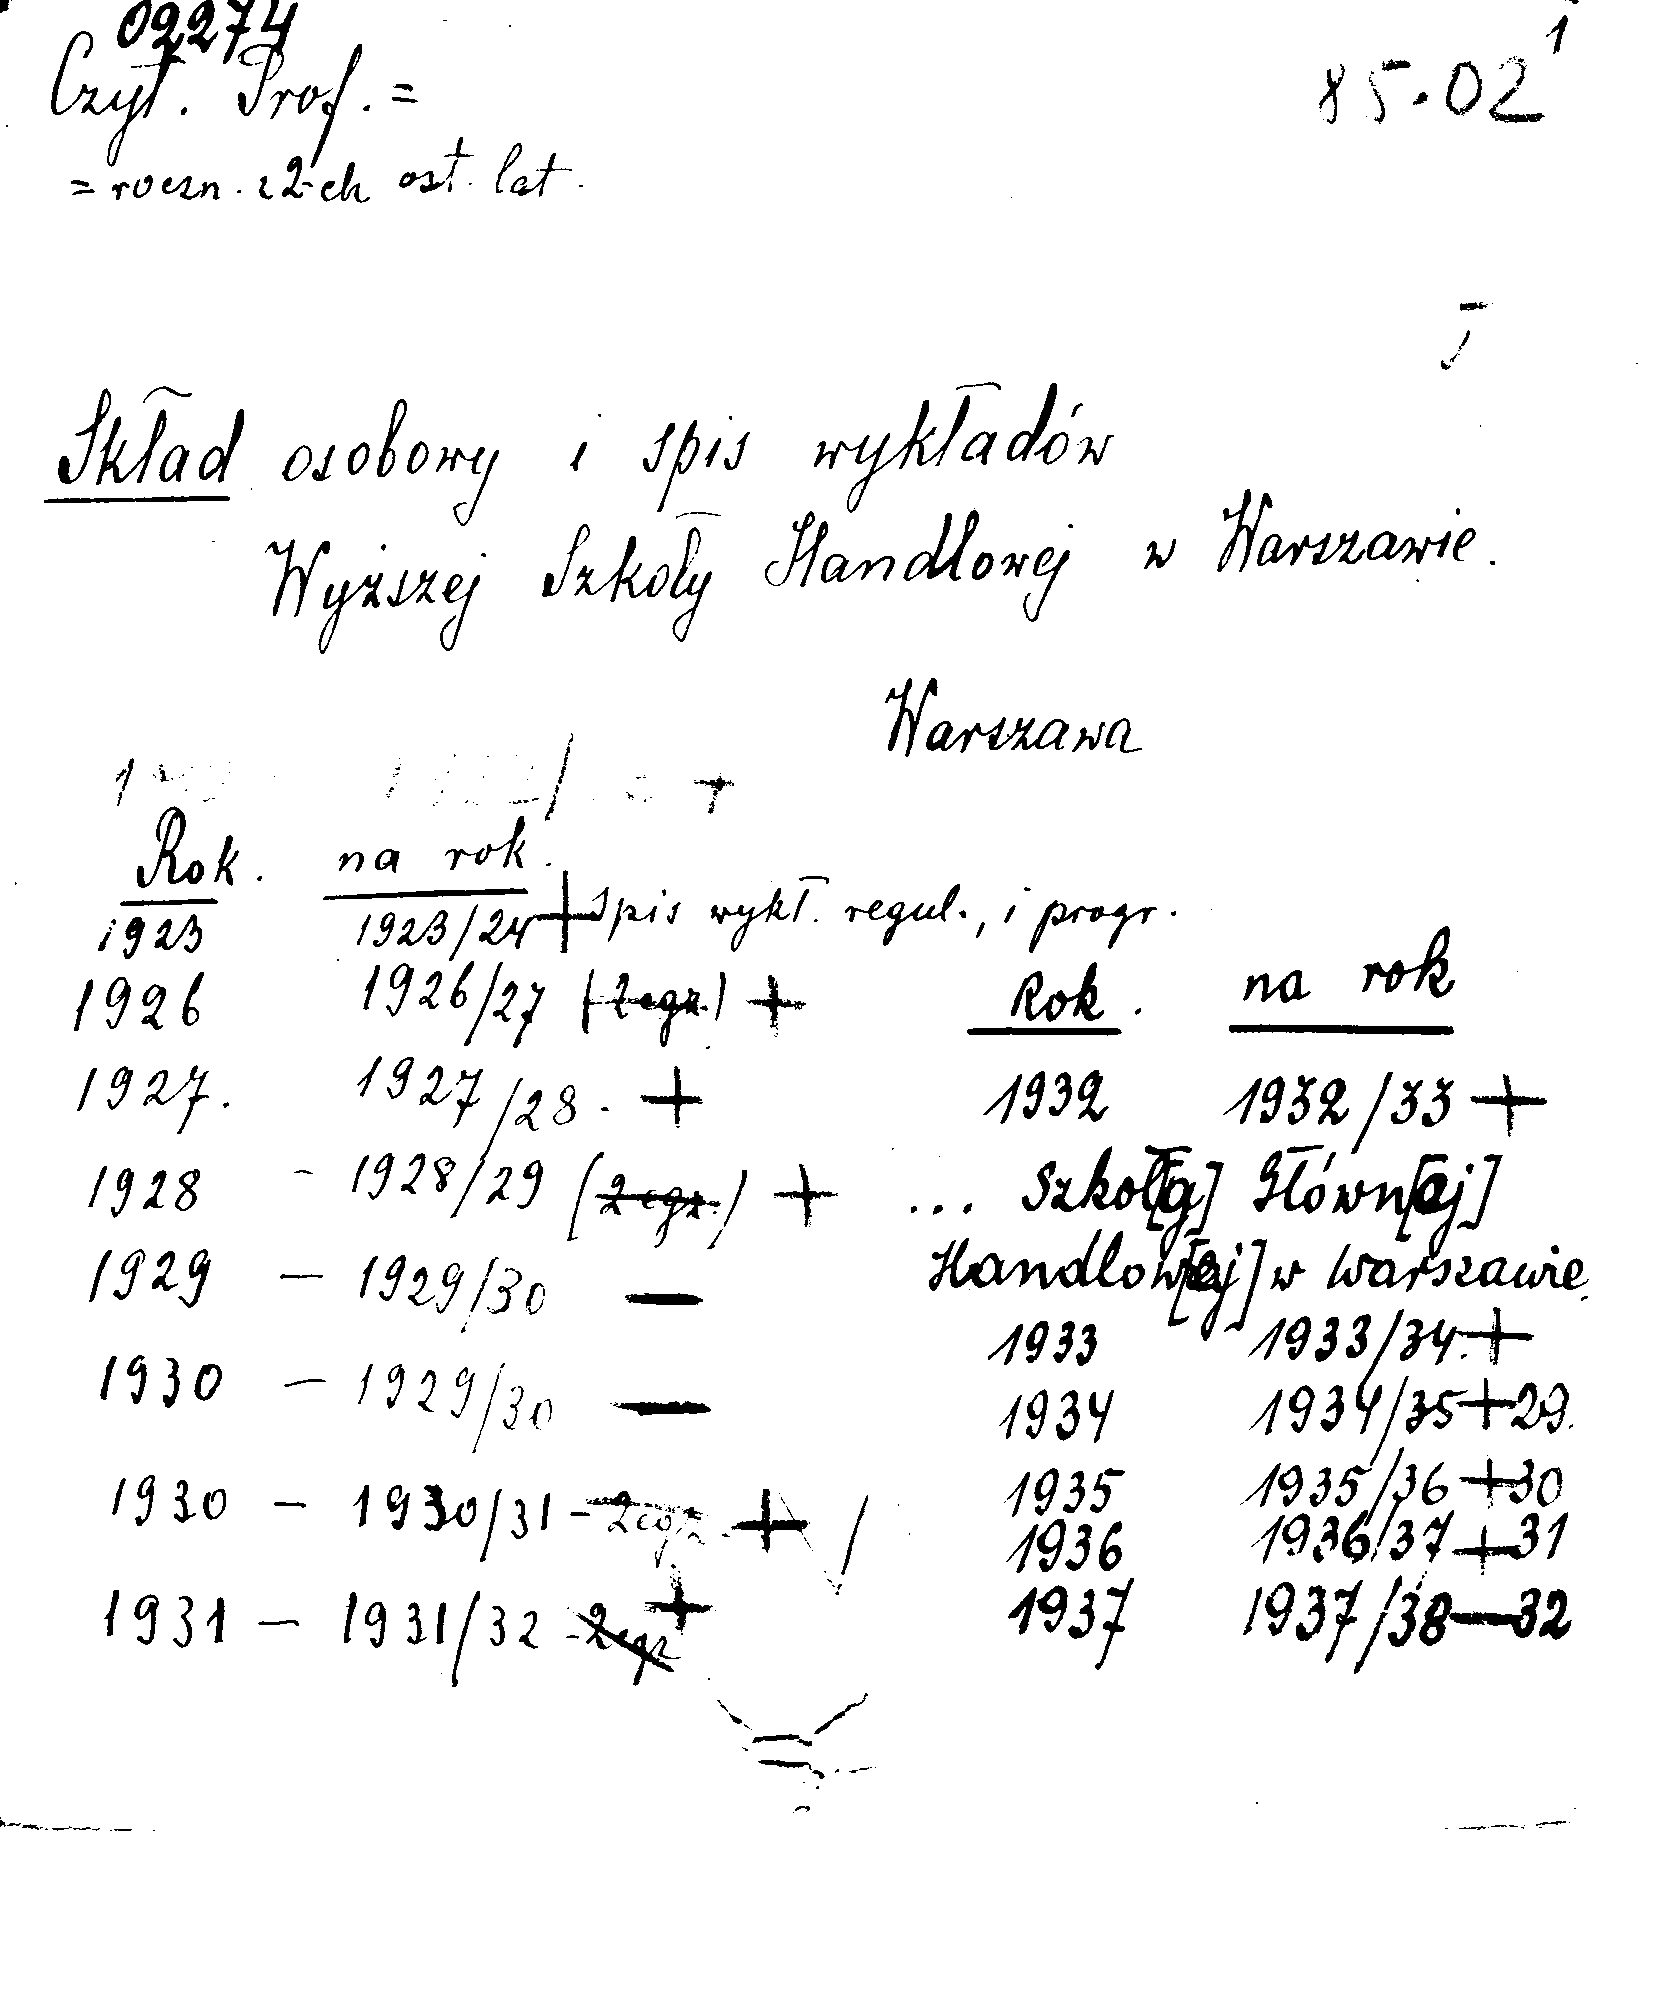 02274
1
Czyt. Prof. =
85.02
= roczn. z 2-ch ost. lat.
Skład osobowy i spis wykładów
Wyższej Szkoły Handlowej w Warszawie.
Warszawa
Rok. na rok.
1923 1923/24 + Spis wykł. regul., i progr.
1926 1926/27 (2 egz.) +
1927. 1927/28. +
1928 - 1928/29 (2 egz.) +
1929 - 1929/30 —
1930 - 1929/30 —
1930 - 1930/31 - 2 egz. +
1931 - 1931/32 - 2 egz +
Rok. na rok
1932 1932/33 +
... Szkoł[y] Główn[ej]
Handlow[ej] w Warszawie.
1933 1933/34. +
1934 1934/35 + 29.
1935 1935/36 + 30
1936 1936/37 + 31
1937 1937/38 — 32